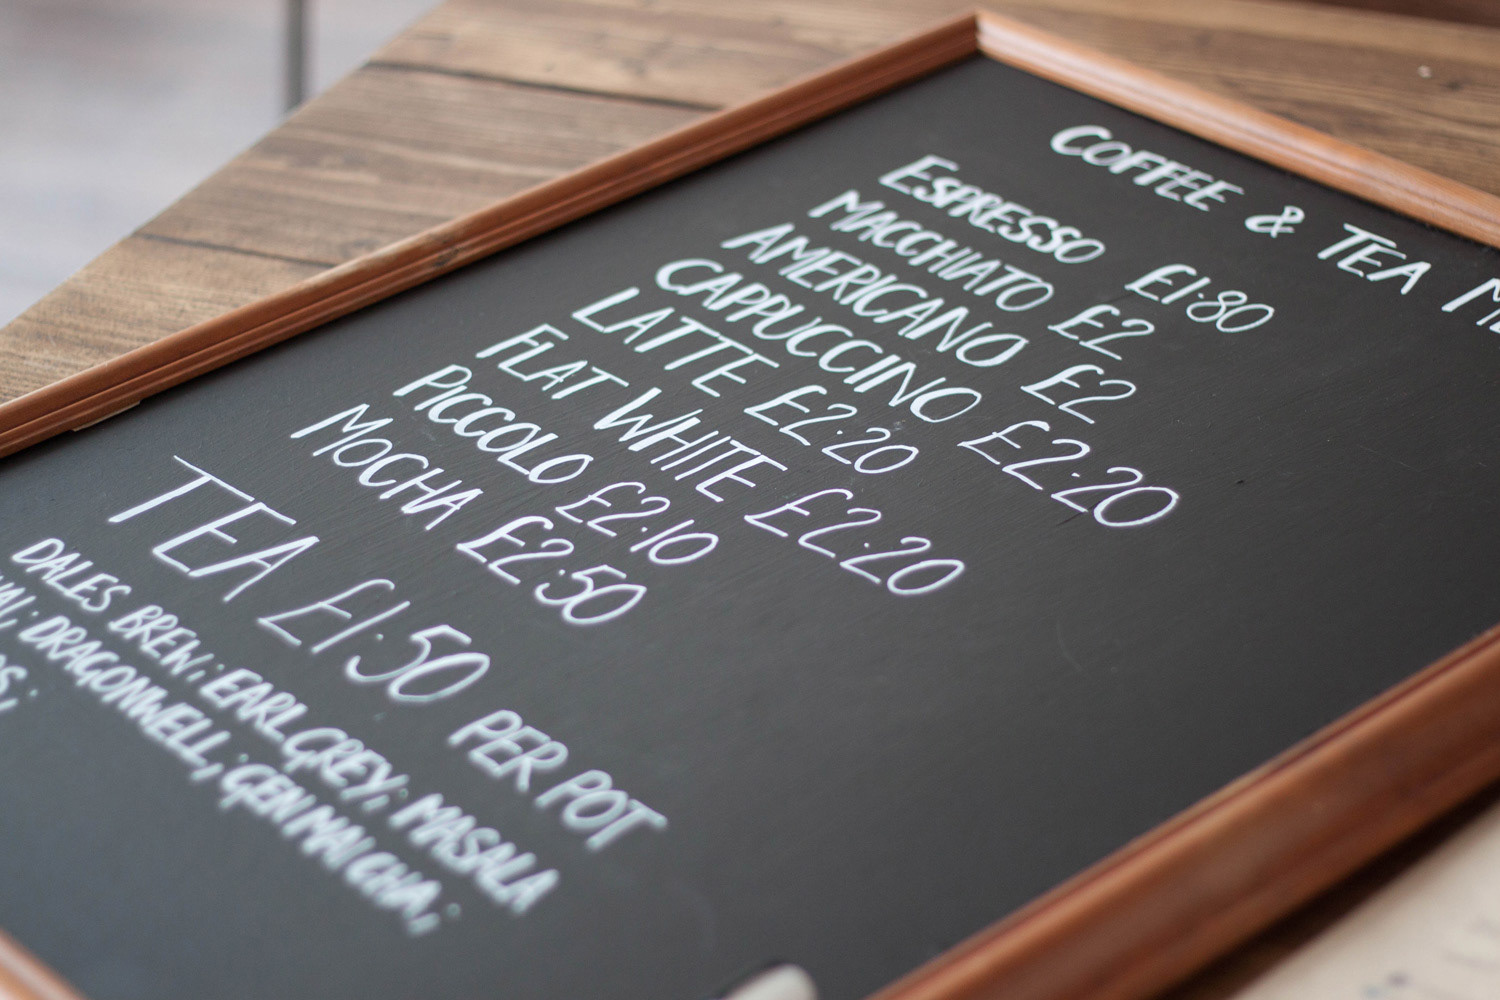 COFFEE & TEA
ESPRESSO £1.80
MACCHIATO £2
AMERICANO £2
CAPPUCCINO £2.20
LATTE £2.20
FLAT WHITE £2.20
PICCOLO £2.10
MOCHA £2.50
TEA £1.50 PER POT
DALES BREW; EARL GREY; MASALA
DRAGONWELL; GENMAICHA;